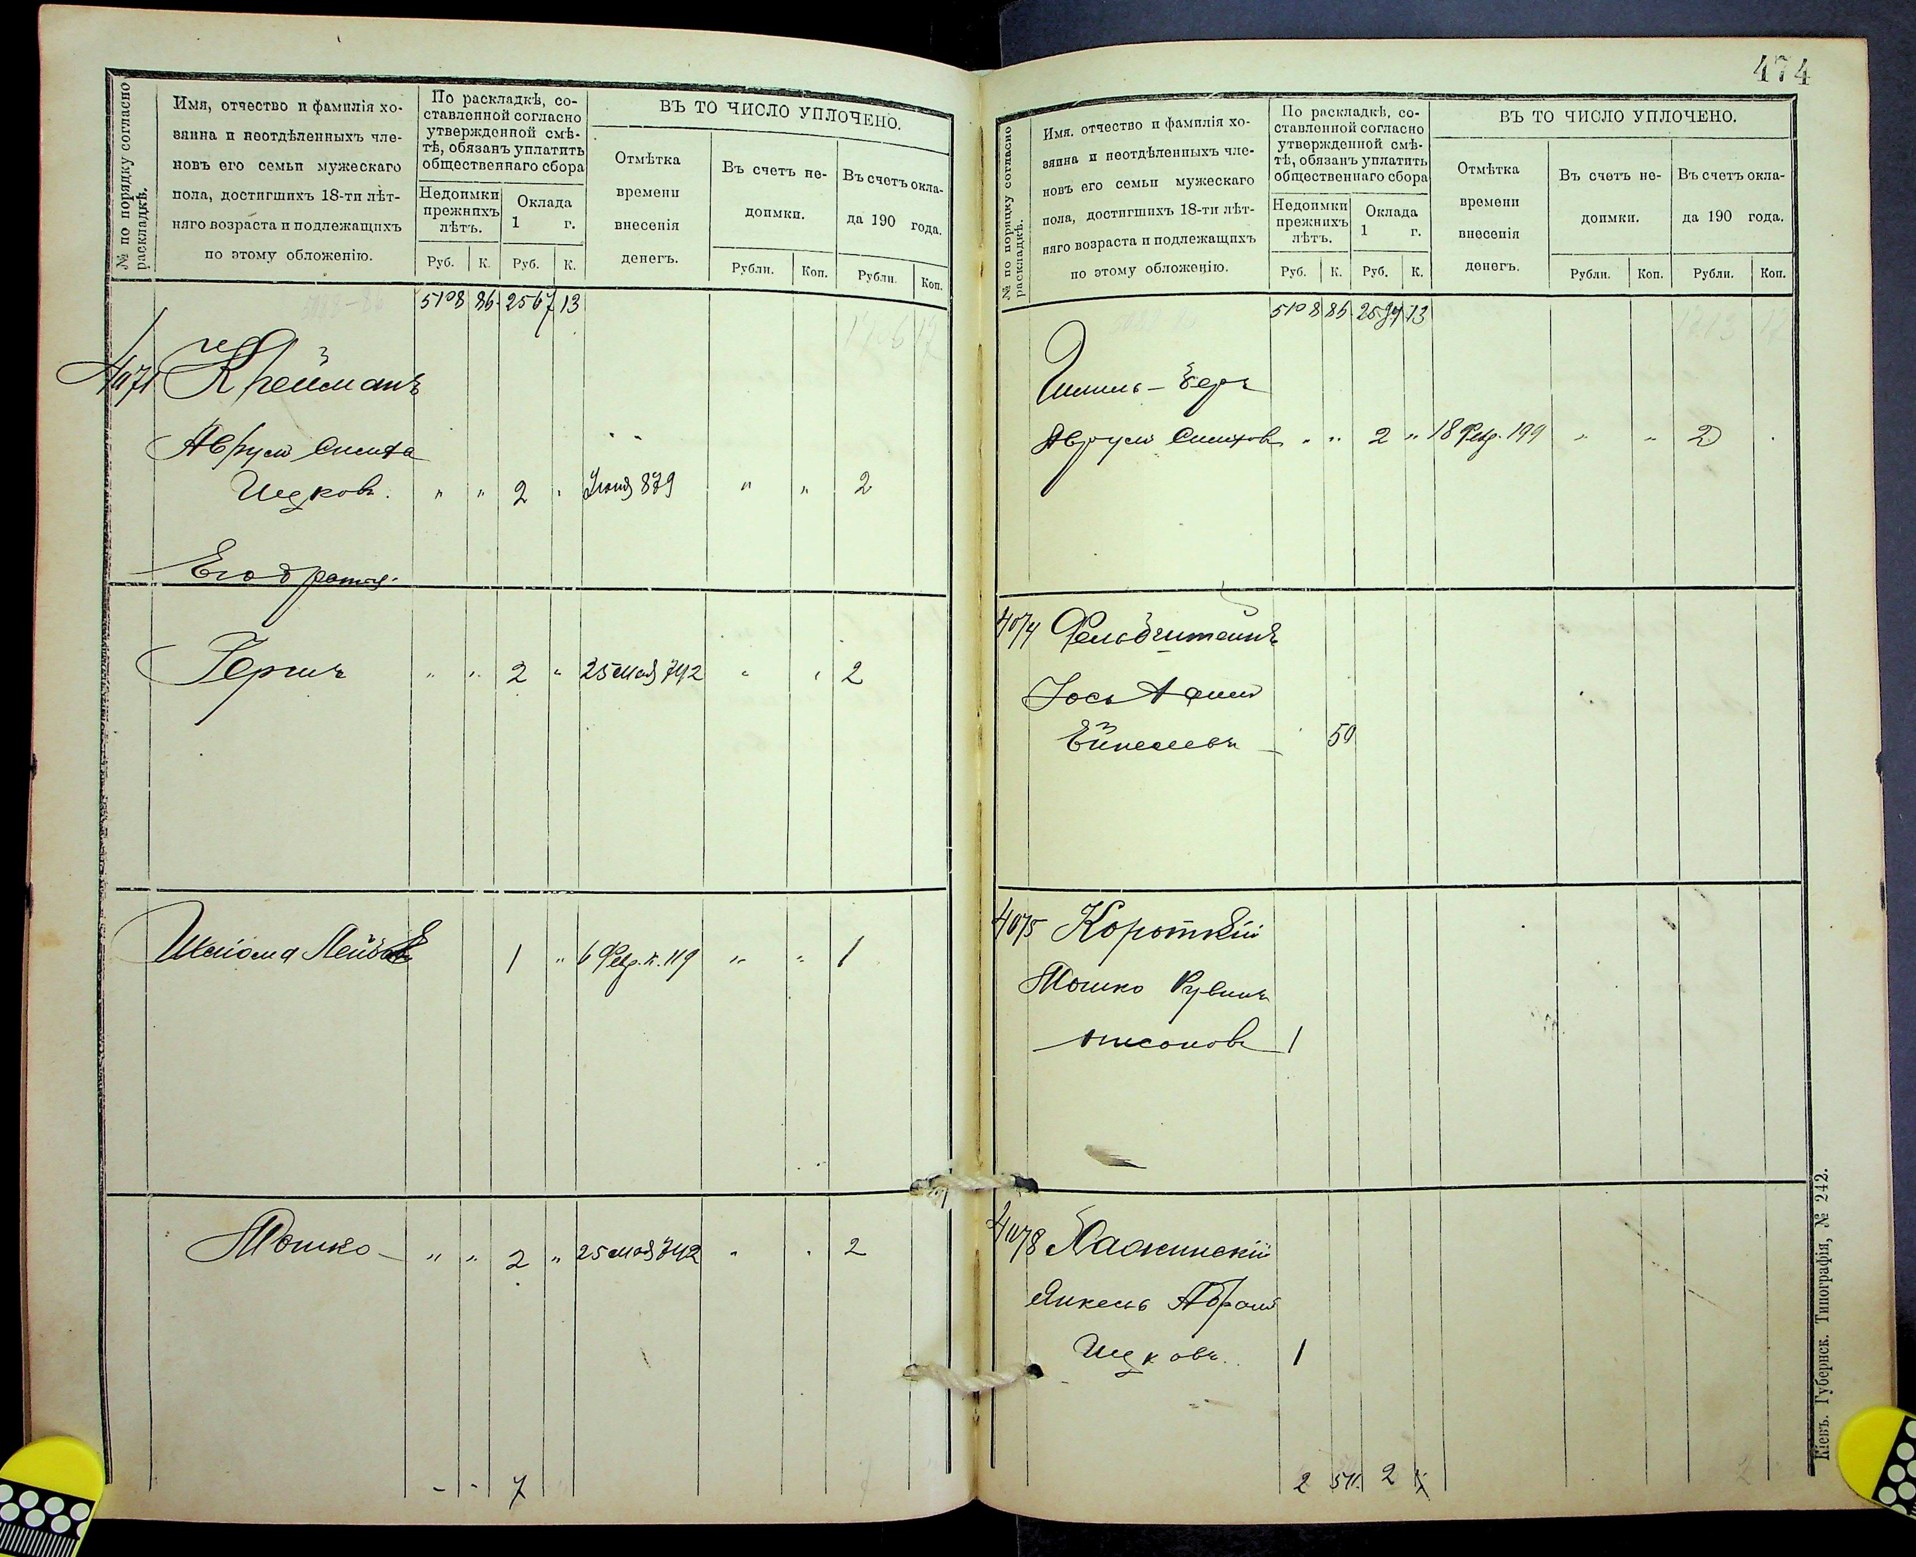 474
№ по порядку согласно раскладкѣ.
Имя, отчество и фамилія хо-
зяина и неотдѣленныхъ чле-
новъ его семьи мужескаго
пола, достигшихъ 18-ти лѣт-
няго возраста и подлежащихъ
по этому обложенію.
По раскладкѣ, со-
ставленной согласно
утвержденной смѣ-
тѣ, обязанъ уплатить
общественнаго сбора
Недоимки
прежнихъ
лѣтъ.
Оклада
1 г.
Руб. К. Руб. К.
ВЪ ТО ЧИСЛО УПЛОЧЕНО.
Отмѣтка
времени
внесенія
денегъ.
Въ счетъ не-
доимки.
Рубли. Коп.
Въ счетъ окла-
да 190 года.
Рубли. Коп.
5108 86 2567 13
4071 Крейсманъ
Аврумъ
Ицковъ. " " 2 " Іюня 879 " " 2
Его братья.
Гершъ " " 2 " 25 Мая 742 " " 2
Шліома Лейба 1 " 6 Фев. 119 " " 1
Мошко " " 2 " 25 Мая 742 " " 2
- - 7
№ по порядку согласно раскладкѣ.
Имя, отчество и фамилія хо-
зяина и неотдѣленныхъ чле-
новъ его семьи мужескаго
пола, достигшихъ 18-ти лѣт-
няго возраста и подлежащихъ
по этому обложенію.
По раскладкѣ, со-
ставленной согласно
утвержденной смѣ-
тѣ, обязанъ уплатить
общественнаго сбора
Недоимки
прежнихъ
лѣтъ.
Оклада
1 г.
Руб. К. Руб. К.
ВЪ ТО ЧИСЛО УПЛОЧЕНО.
Отмѣтка
времени
внесенія
денегъ.
Въ счетъ не-
доимки.
Рубли. Коп.
Въ счетъ окла-
да 190 года.
Рубли. Коп.
5108 86 2574 13
Шмиль-Беръ
Аврумъ " " 2 " 18 Фев. 199 " " 2
4074 Фельдштейнъ
Іось
50
4075 Короткій
Мошко Рувинъ
1
4078
Янкель Абрамъ
Ицковъ. 1
2 50 2
Кіевъ. Губернск. Типографія, № 242.